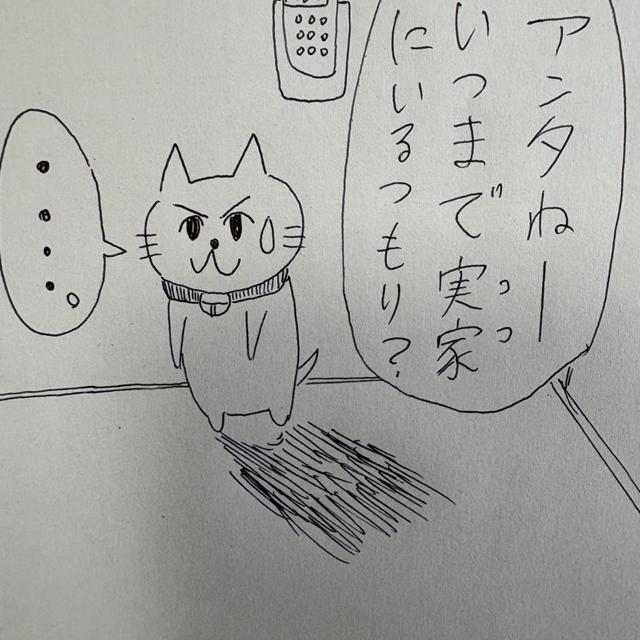 アンタねー
いつまで実家
ココ
にいるつもり？
・・・・。